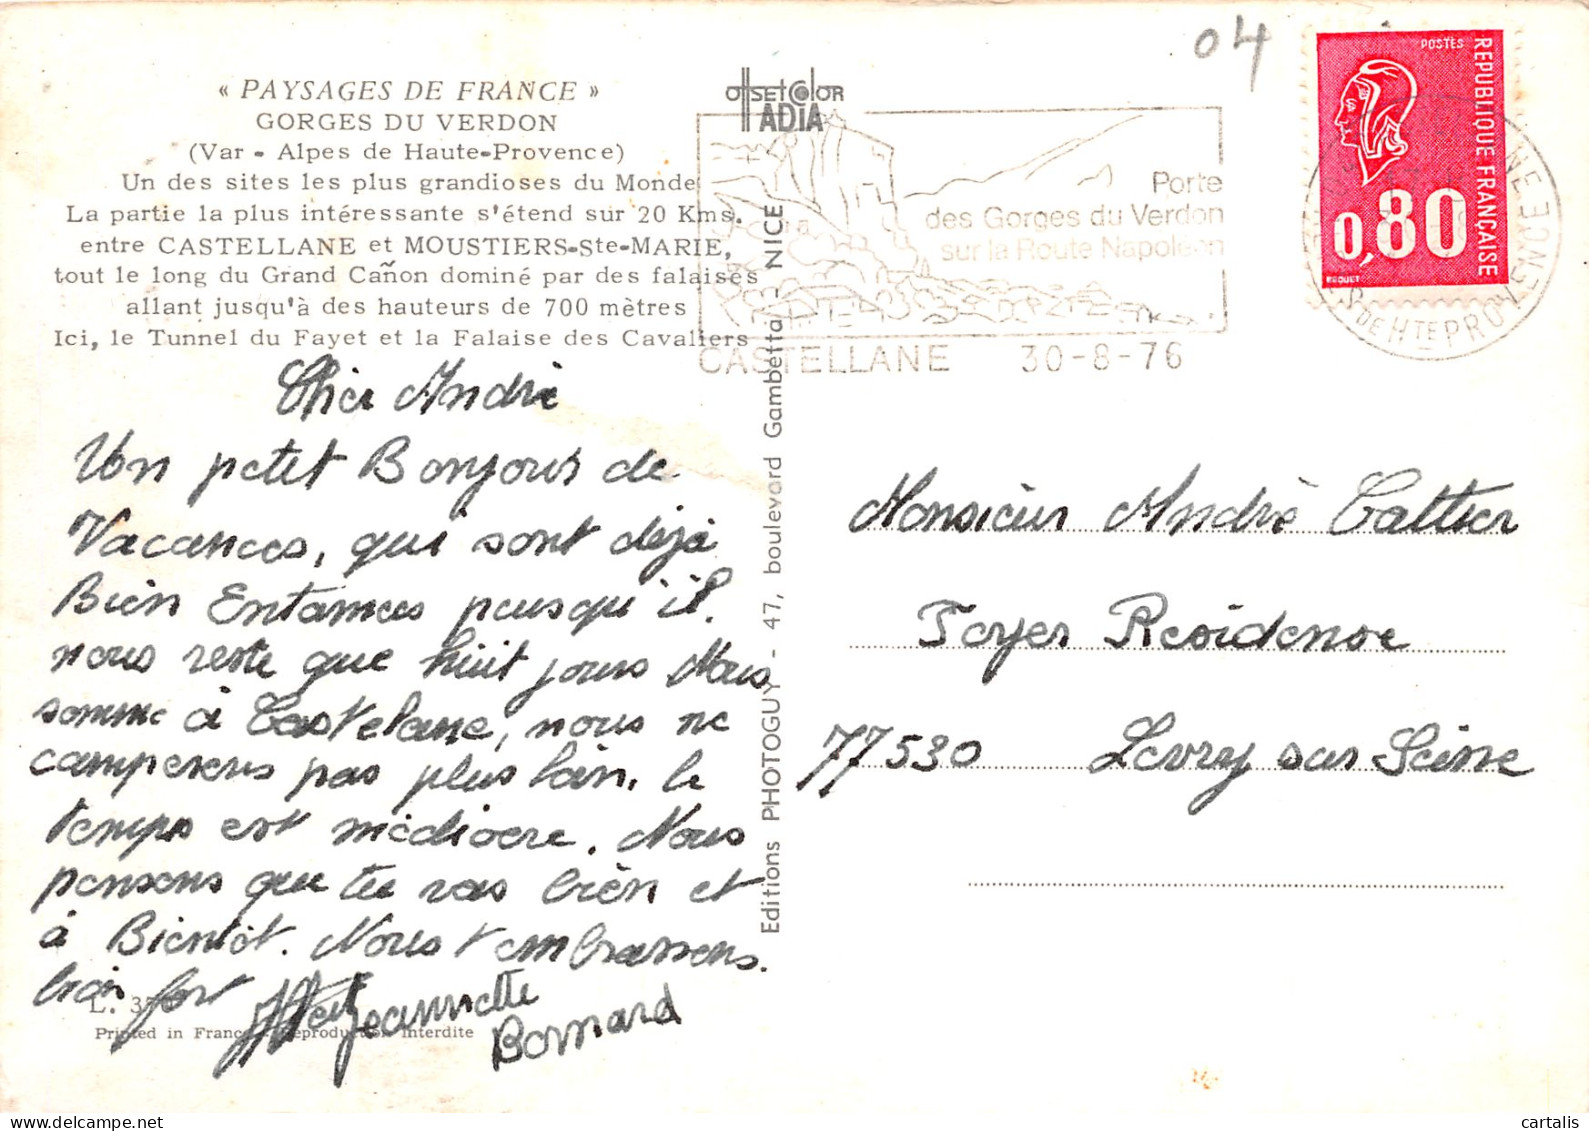 04
« PAYSAGES DE FRANCE »
GORGES DU VERDON
(Var - Alpes de Haute-Provence)
Un des sites les plus grandioses du Monde
La partie la plus intéressante s'étend sur 20 Kms.
entre CASTELLANE et MOUSTIERS-Ste-MARIE,
tout le long du Grand Cañon dominé par des falaises
allant jusqu'à des hauteurs de 700 mètres
Ici, le Tunnel du Fayet et la Falaise des Cavaliers
offset color
ADIA
Porte
des Gorges du Verdon
sur la Route Napoléon
CASTELLANE 30-8-76
POSTES
REPUBLIQUE FRANÇAISE
0,80
BEQUET
DE HTE PROVENCE
Cher André
Un petit Bonjour de
Vacances, qui sont déjà
Bien Entamees puisqu'il
nous reste que huit jours Nous
somme à Castelane, nous ne
camperons pas plus loin, le
temps est médiocre. Nous
pensons que tu vas bien et
à Bientôt. Nous t'embrassons.
bien fort
Jeannette
Bernard
L. 3
Printed in France - Reproduction interdite
Editions PHOTOGUY - 47, boulevard Gambetta - NICE
Monsieur André Cattier
Foyer Residense
77530 Livry sur Seine
cartalis
www.delcampe.net